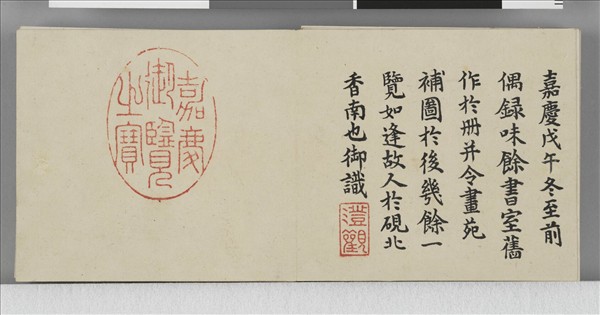 嘉慶戊午冬至前
偶録味餘書室舊
作於冊并令畫苑
補圖於後幾餘一
覽如逢故人於硯北
香南也御識
澄觀
嘉慶
御覽
之寶